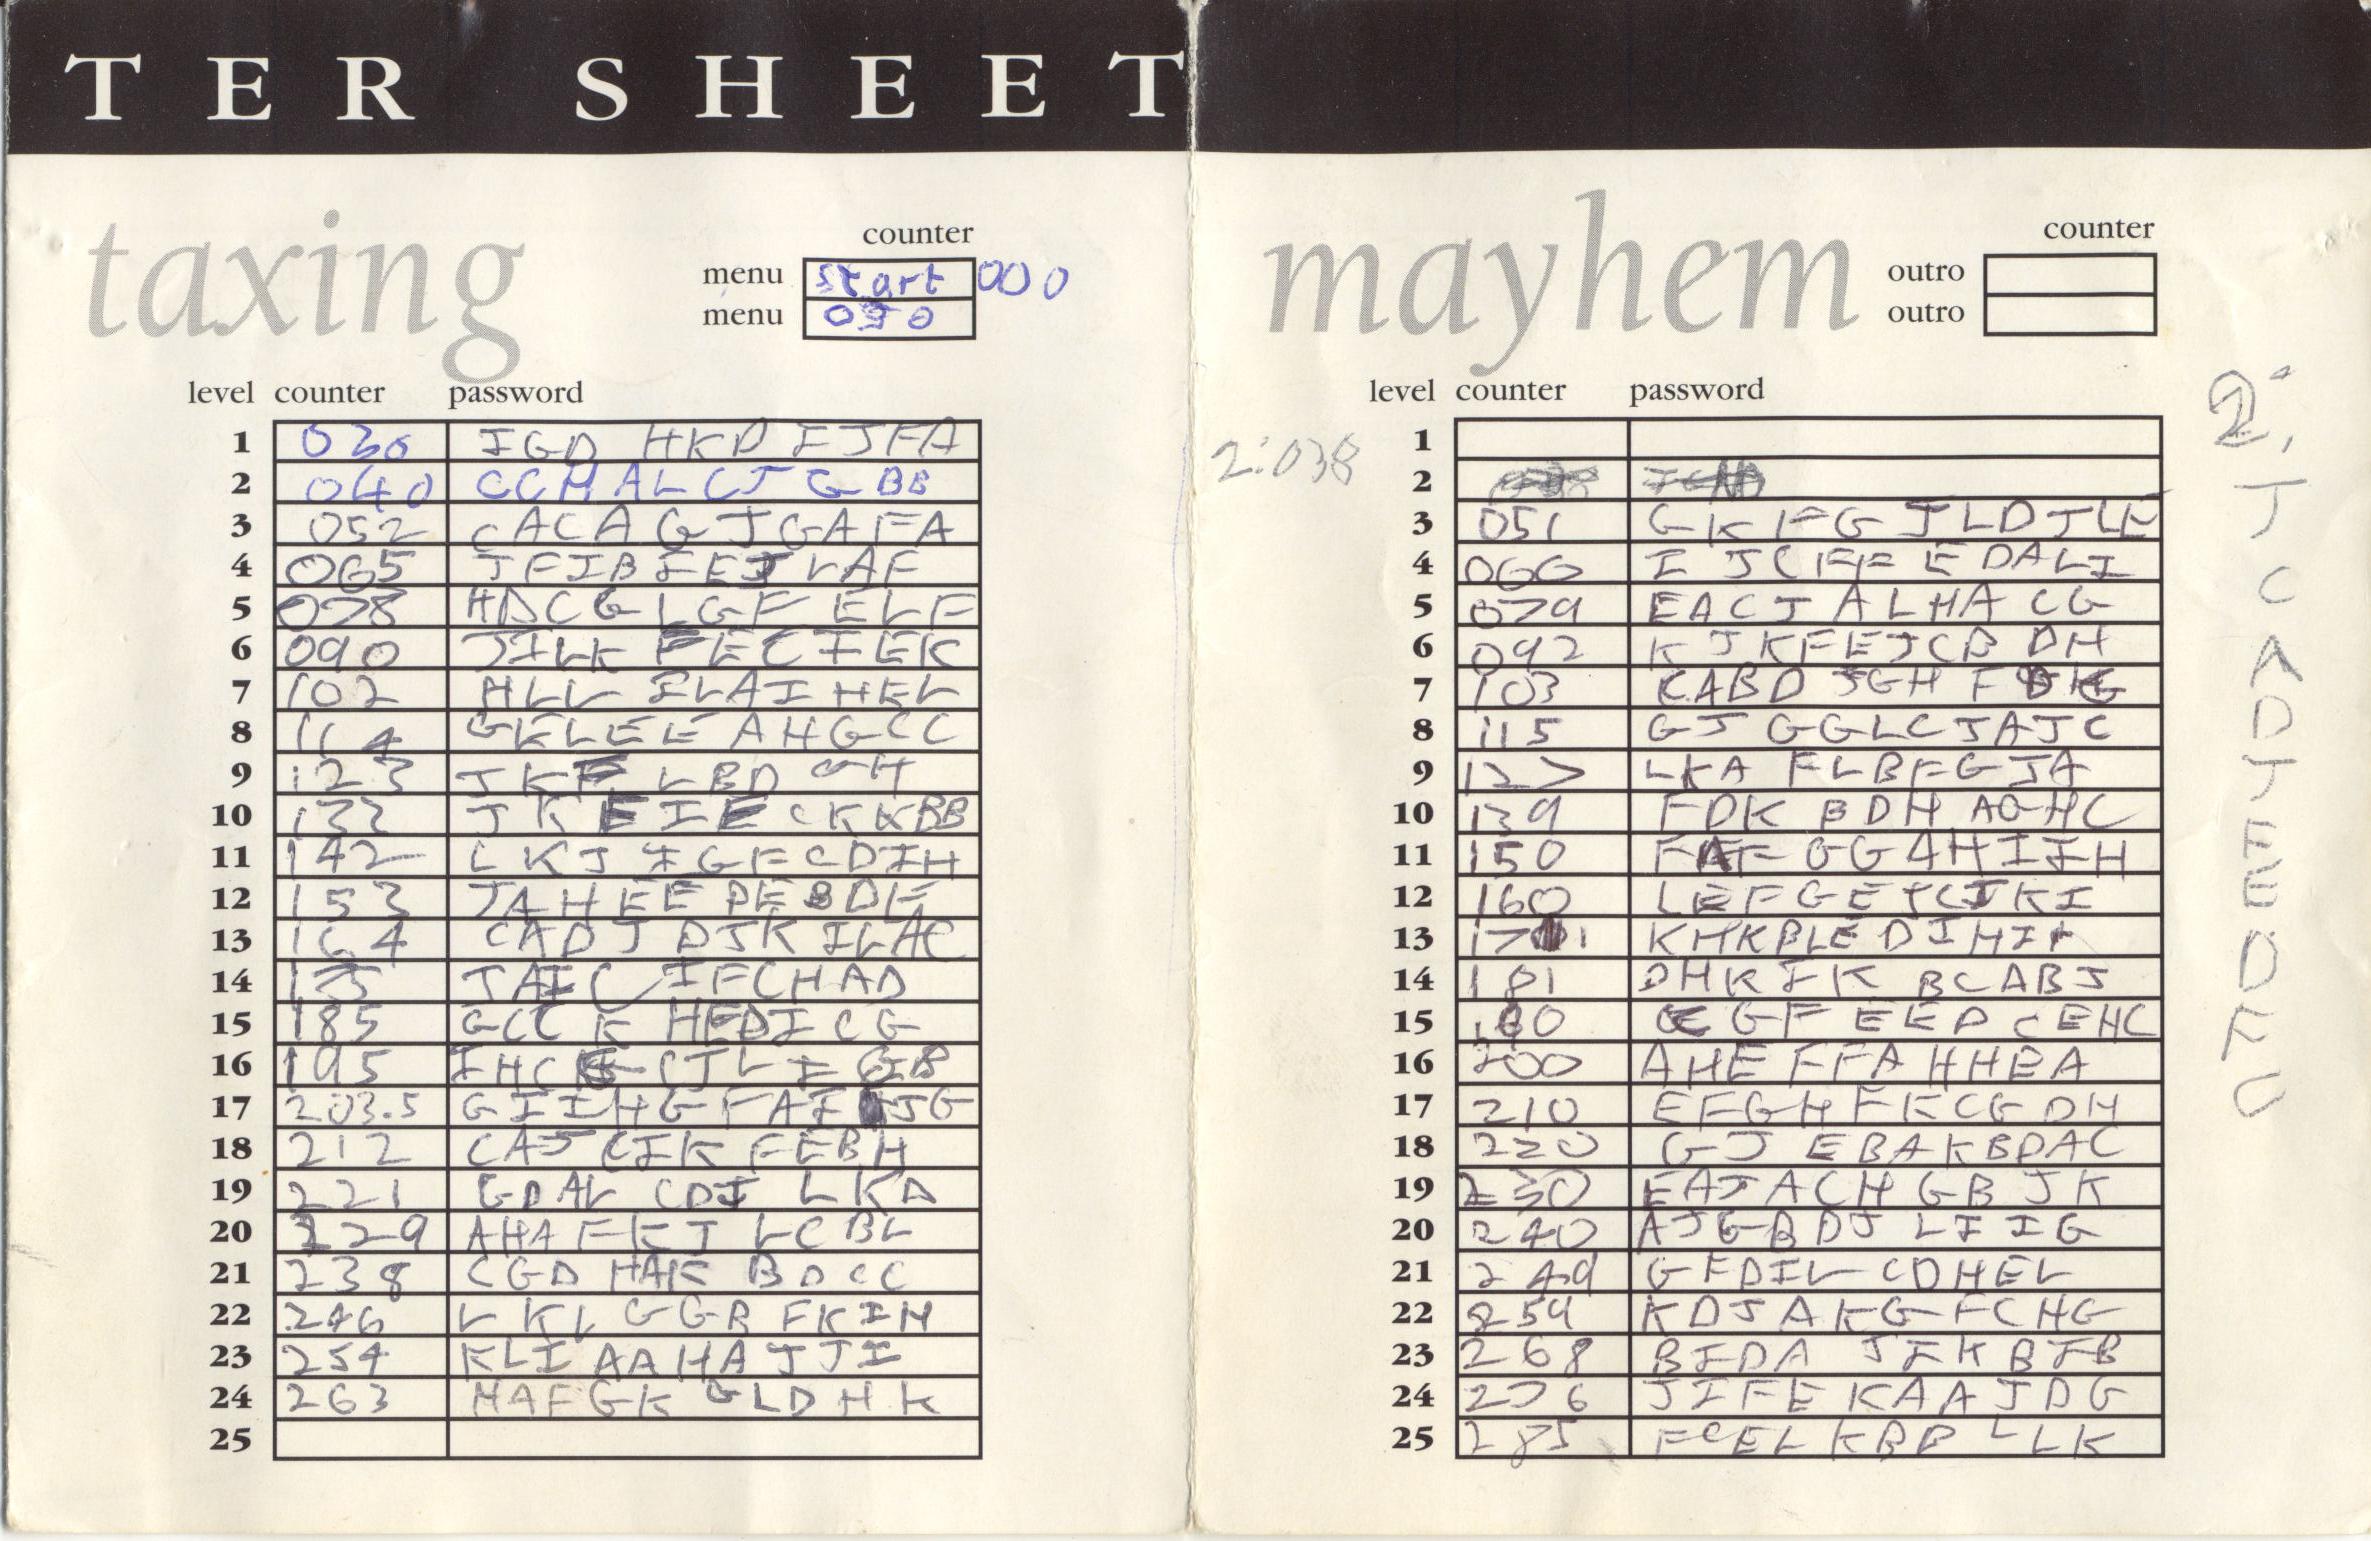 TER SHEET
taxing
counter
menu start 000
menu
level counter password
1 030 IGD HKD IJFA
2 040 CCHALCJGBB
3 052 CACAGJGAFA
4 065 JFIBIEJLAF
5 078 HDCGLGFELF
6 090 JILK FECIEK
7 102 HLLILAIHEL
8 114 GELEEAHGCC
9 123 JKF LBD GH
10 132 JKEIE CKKBB
11 142 LKJ IGFCDIH
12 153 JAHEE DEBDF
13 164 CADJ DJK ILAC
14 175 JAIC IFCHAD
15 185 GCCK HFDICG
16 195 IHC CJLI GB
17 203.5 GIIHGFAI JG
18 212 CAJ CIK FEBH
19 221 GDAL CDI LKD
20 229 AHAFKJ LCBL
21 238 CGD HAK BDCC
22 246 LKL GGB FKIH
23 254 KLI AAHAJJI
24 263 HAFGK GLDHK
25
mayhem
counter
outro
outro
level counter password
1
2:038 2
3 051 GKFG JLDJLE
4 066 IJCFF EDALI
5 079 EACJ ALHA CG
6 092 KJKFEJCB DH
7 103 CABD JGH F
8 115 GJ GGLCJAJC
9 127 LKA FLBFGJA
10 139 FDK BDH AGHC
11 150 FAF GGAHIIH
12 160 LEFGEJCJKI
13 171 KHKBLE DIHI
14 181 DHKIK BCABJ
15 190 GF EED CEHC
16 200 AHE FFA HHBA
17 210 EFGH FKCG DH
18 220 GJ EBAKBDAC
19 230 EAJACH GB JK
20 240 AJGBDJ LIIG
21 249 GFDIL CDHEL
22 259 KDJAKGFCHG
23 268 BIDA JIKBIB
24 276 JIFE KAAJDG
25 285 FCEL KBB LLK
2:
J
C
A
D
J
E
E
D
F
G